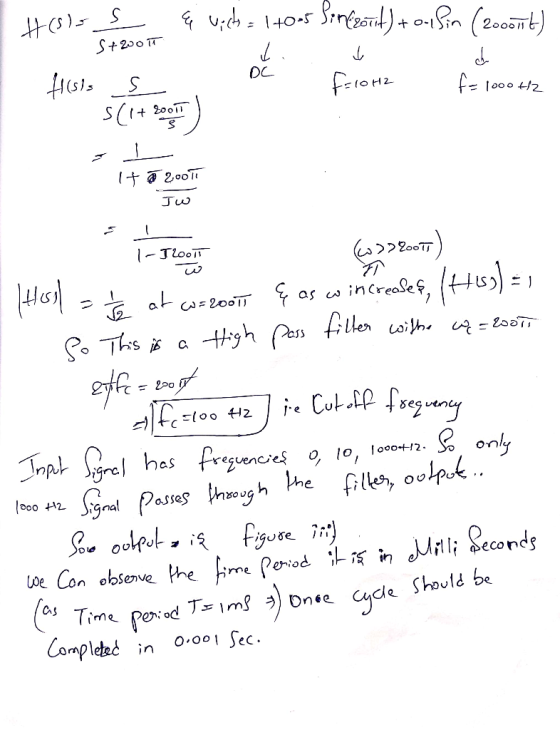 H(s) = S / (S+200π) & Vi(t) = 1+0.5 Sin(20πt) + 0.1 Sin (2000πt)
↓ DC ↓ f=10Hz ↓ f=1000Hz
H(s) = S / (S(1+ 200π/S))
= 1 / (1+ 200π/Jω)
= 1 / (1 - J200π/ω)
(ω>>200π)
|H(s)| = 1/√2 at ω=200π & as ω increases, |H(s)| = 1
So This is a High Pass filter with ωc = 200π
2πfc = 200π
⇒ fc=100 Hz i.e Cut off frequency
Input Signal has frequencies 0, 10, 1000Hz. So only
1000 Hz Signal Passes through the filter, output..
So output is figure iii)
we Can observe the time Period it is in Milli Seconds
(as Time period T=1ms ⇒) Once cycle should be
Completed in 0.001 Sec.